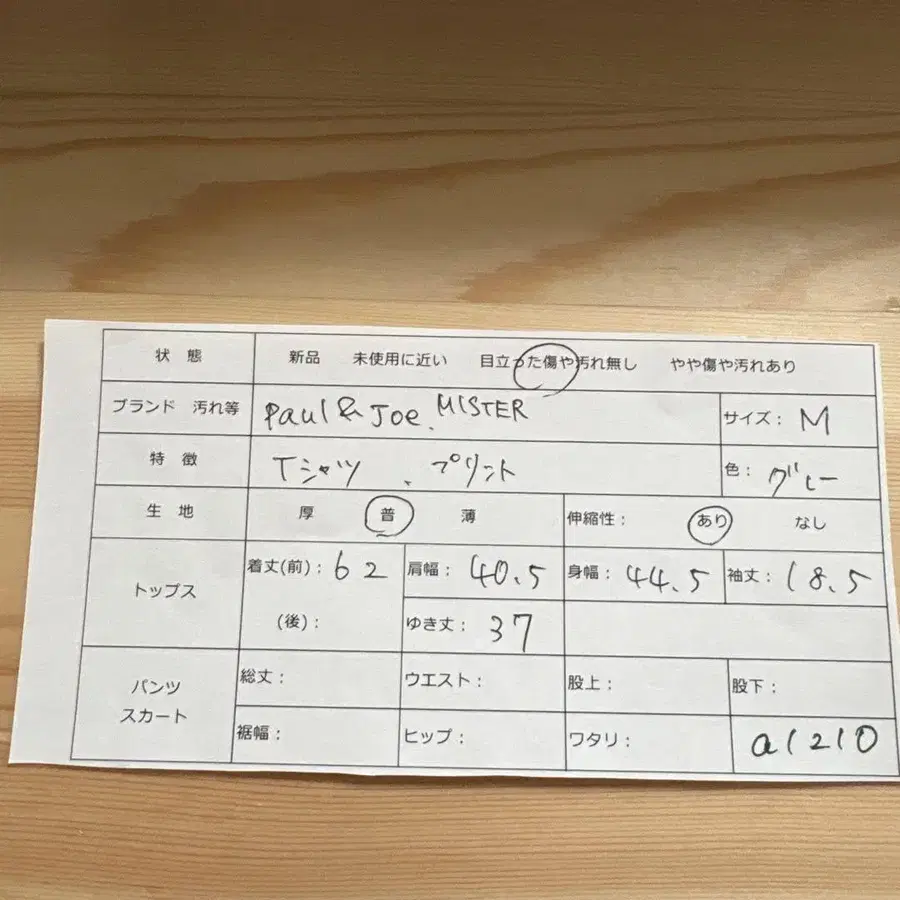 状 態 新品 未使用に近い 目立った傷や汚れ無し やや傷や汚れあり
ブランド 汚れ等 Paul & Joe. MISTER サイズ: M
特 徴 Tシャツ 、プリント 色: グレー
生 地 厚 普 薄 伸縮性: あり なし
トップス 着丈(前): 62 肩幅: 40.5 身幅: 44.5 袖丈: 18.5
(後): ゆき丈: 37
パンツ スカート 総丈: ウエスト: 股上: 股下:
裾幅: ヒップ: ワタリ: a1210